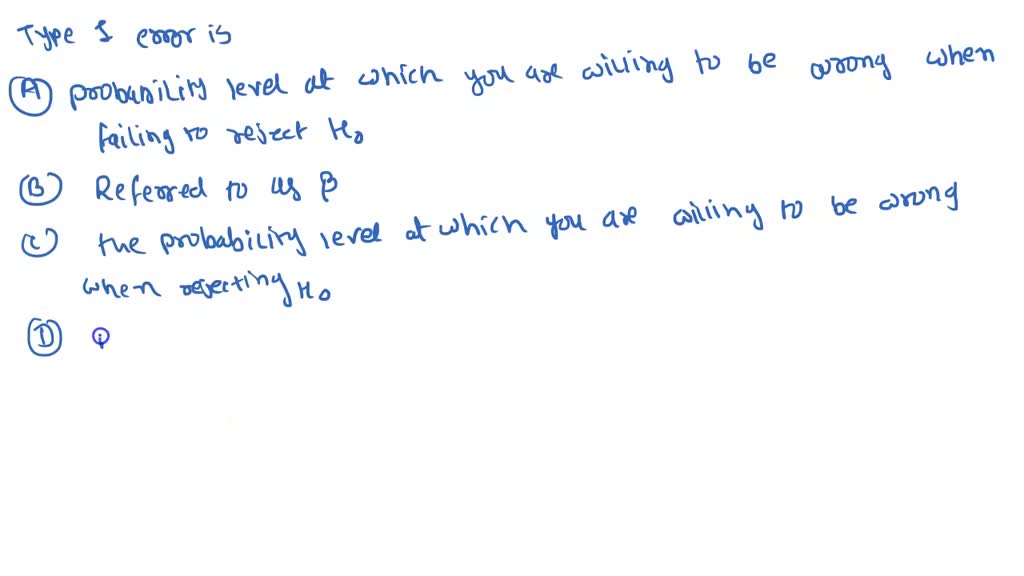 Type I error is
(A) probability level at which you are willing to be wrong when
failing to reject H₀
(B) Referred to as β
(C) the probability level at which you are willing to be wrong
when rejecting H₀
(D) i